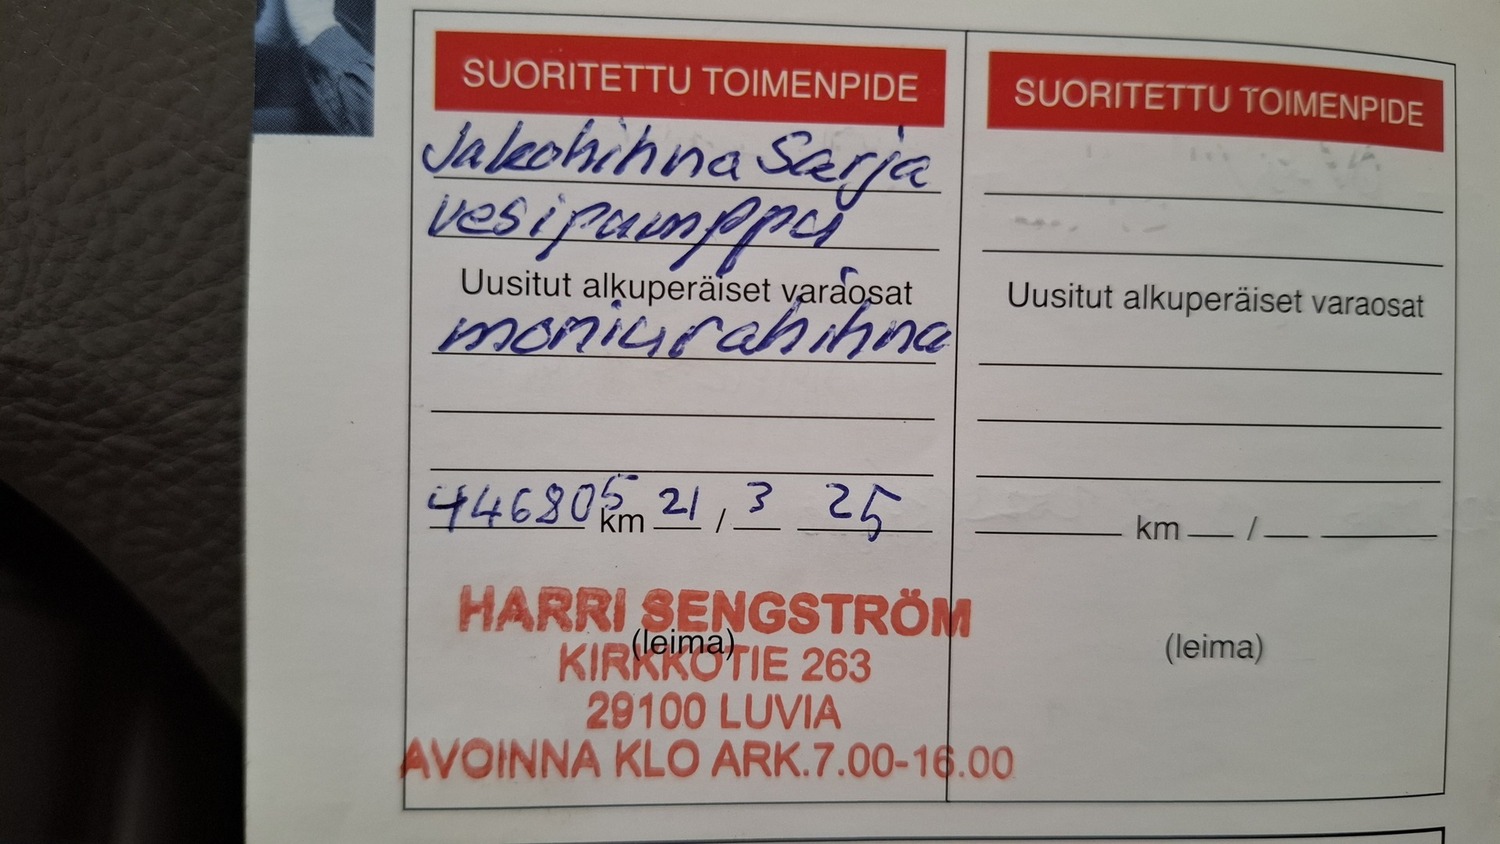 SUORITETTU TOIMENPIDE
Jakohihna Sarja
vesipumppu
Uusitut alkuperäiset varaosat
moniurahihna
446805 km 21 / 3 25
HARRI SENGSTRÖM
(leima)
KIRKKOTIE 263
29100 LUVIA
AVOINNA KLO ARK.7.00-16.00
SUORITETTU TOIMENPIDE
Uusitut alkuperäiset varaosat
km / 
(leima)